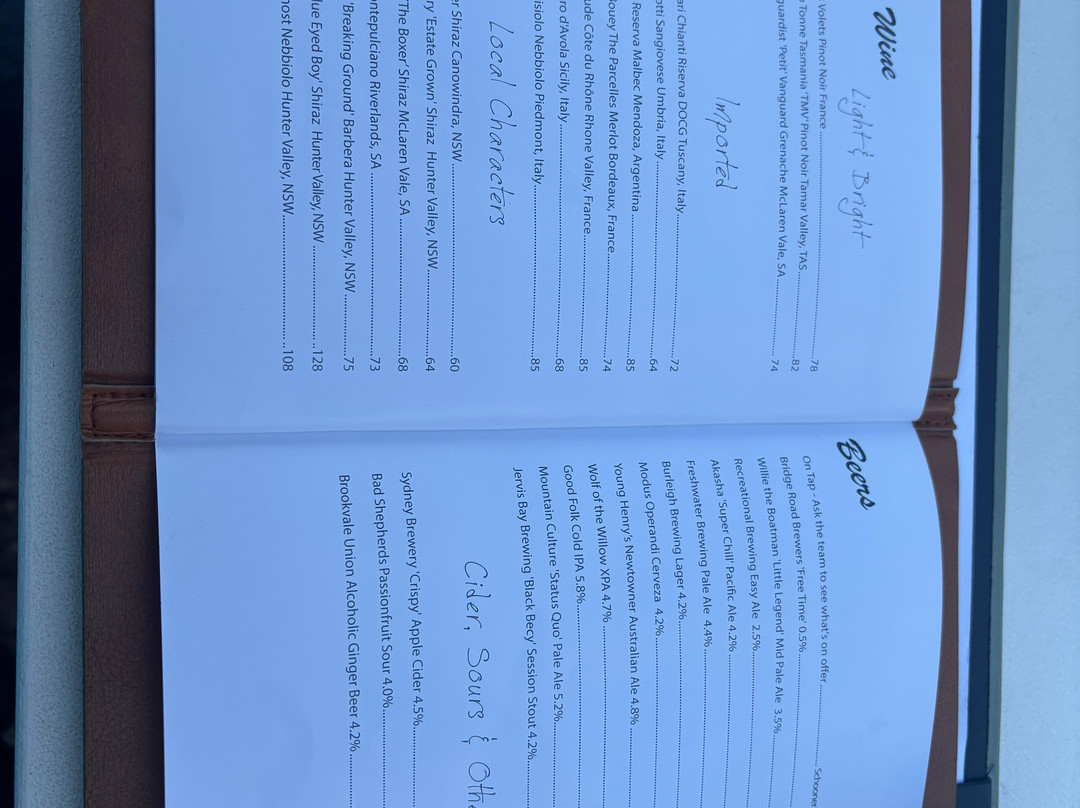 Wine
Light & Bright
Volets Pinot Noir France 78
Tonne Tasmania 'TMV' Pinot Noir Tamar Valley, TAS 82
guardist 'Petit' Vanguard Grenache McLaren Vale, SA 74
Imported
ari Chianti Riserva DOCG Tuscany, Italy 72
otti Sangiovese Umbria, Italy 64
Reserva Malbec Mendoza, Argentina 85
ouey The Parcelles Merlot Bordeaux, France 74
ude Côte du Rhône Rhone Valley, France 85
ro d'Avola Sicily, Italy 68
isiolo Nebbiolo Piedmont, Italy 85
Local Characters
er Shiraz Canowindra, NSW 60
ry 'Estate Grown' Shiraz Hunter Valley, NSW 64
'The Boxer' Shiraz McLaren Vale, SA 68
ontepulciano Riverlands, SA 73
'Breaking Ground' Barbera Hunter Valley, NSW 75
lue Eyed Boy' Shiraz Hunter Valley, NSW 128
host Nebbiolo Hunter Valley, NSW 108
Beers
Schooner
On Tap - Ask the team to see what's on offer
Bridge Road Brewers 'Free Time' 0.5%
Willie the Boatman 'Little Legend' Mid Pale Ale 3.5%
Recreational Brewing Easy Ale 2.5%
Akasha 'Super Chill' Pacific Ale 4.2%
Freshwater Brewing Pale Ale 4.4%
Burleigh Brewing Lager 4.2%
Modus Operandi Cerveza 4.2%
Young Henry's Newtowner Australian Ale 4.8%
Wolf of the Willow XPA 4.7%
Good Folk Cold IPA 5.8%
Mountain Culture 'Status Quo' Pale Ale 5.2%
Jervis Bay Brewing 'Black Becy' Session Stout 4.2%
Cider, Sours & Othe
Sydney Brewery 'Crispy' Apple Cider 4.5%
Bad Shepherds Passionfruit Sour 4.0%
Brookvale Union Alcoholic Ginger Beer 4.2%